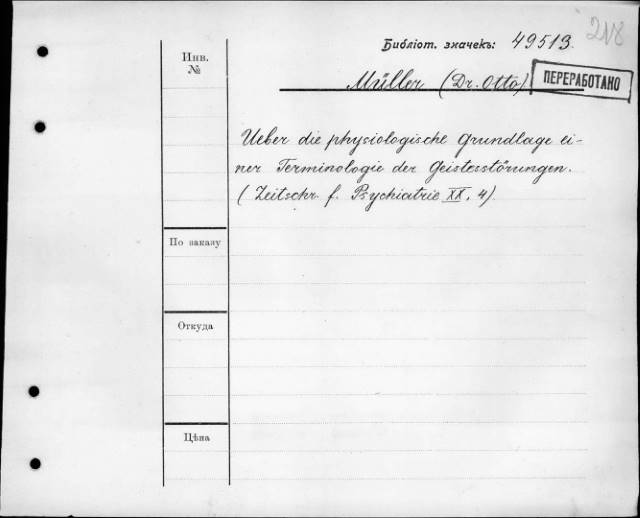 218
Библіот. значекъ: 49513
Инв.
№
Müller (Dr. Otto)
ПЕРЕРАБОТАНО
Ueber die physiologische Grundlage ei-
ner Terminologie der Geistesstörungen.
(Zeitschr. f. Psychiatrie XX, 4).
По заказу
Откуда
Цѣна